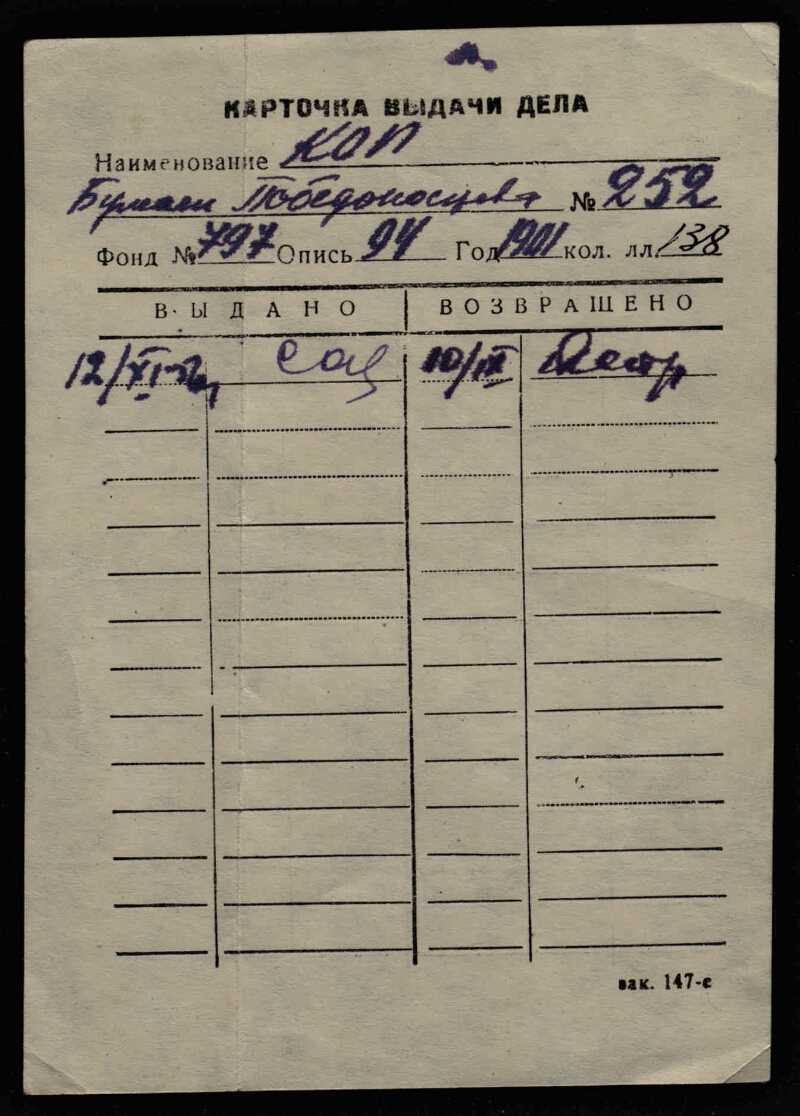 КАРТОЧКА ВЫДАЧИ ДЕЛА
Наименование КОП
Бумаги Победоносцева № 252
Фонд № 797 Опись 94 Год 1901 кол. лл. 138
ВЫДАНО ВОЗВРАЩЕНО
12/XI 10/IX
зак. 147-с